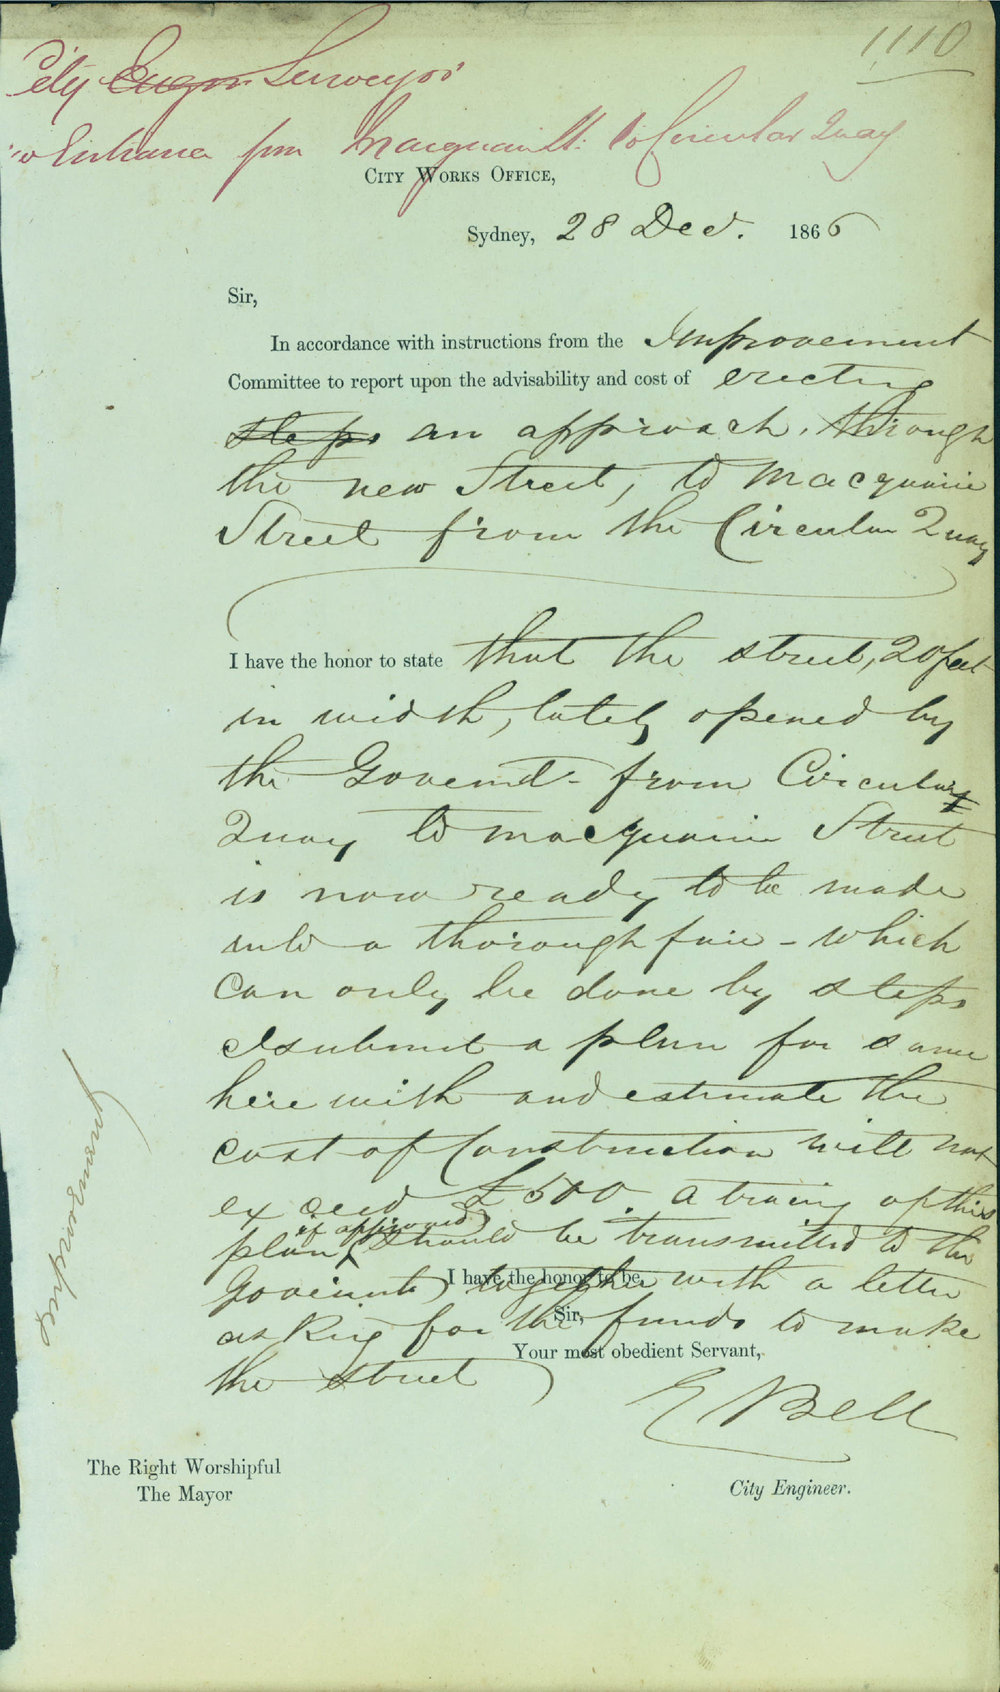 1110
City Engrs Surveyor
Entrance from Macquarie St. to Circular Quay
CITY WORKS OFFICE,
Sydney, 28 Decr. 1866
Sir,
In accordance with instructions from the Improvement
Committee to report upon the advisability and cost of erecting
steps an approach, through
the new Street, to Macquarie
Street from the Circular Quay
I have the honor to state that the street, 20 feet
in width, lately opened by
the Governmt- from Circular
Quay to Macquarie Street
is now ready to be made
into a thoroughfare - which
can only be done by steps
I submit a plan for same
herewith and estimate the
cost of Construction will not
exceed £500. a tracing of this
plan if approved should be transmitted to the
Governmt, together with a letter
asking for the funds to make
the street
I have the honor to be,
Sir,
Your most obedient Servant,
E Bell
City Engineer.
The Right Worshipful
The Mayor
Improvement